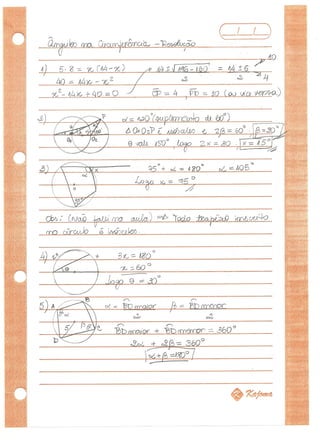 Ângulos na Circunferência - Resolução
1) 5·8 = x(14-x)
40 = 14x - x²
x² - 14x + 40 = 0
14 ± √196-160 = 14 ± 6
2 2
10
4
CP = 4, PD = 10 (ou vice versa)
2) α = 120° (suplemento de 60°)
Δ O₂P É isósceles e 2β = 60° β = 30°
θ vale 150° logo 2x = 30 x = 15°
3) 75° + α = 180° α = 105°
Logo x = 75°
Obs: (Não falei na aula) => Todo trapézio inscrito
no círculo é isósceles.
4) 3x = 180°
x = 60°
Logo θ = 30°
5) α = BD maior β = BD menor
2 2
BD maior + BD menor = 360°
2α + 2β = 360°
α + β = 180°
Kajoma